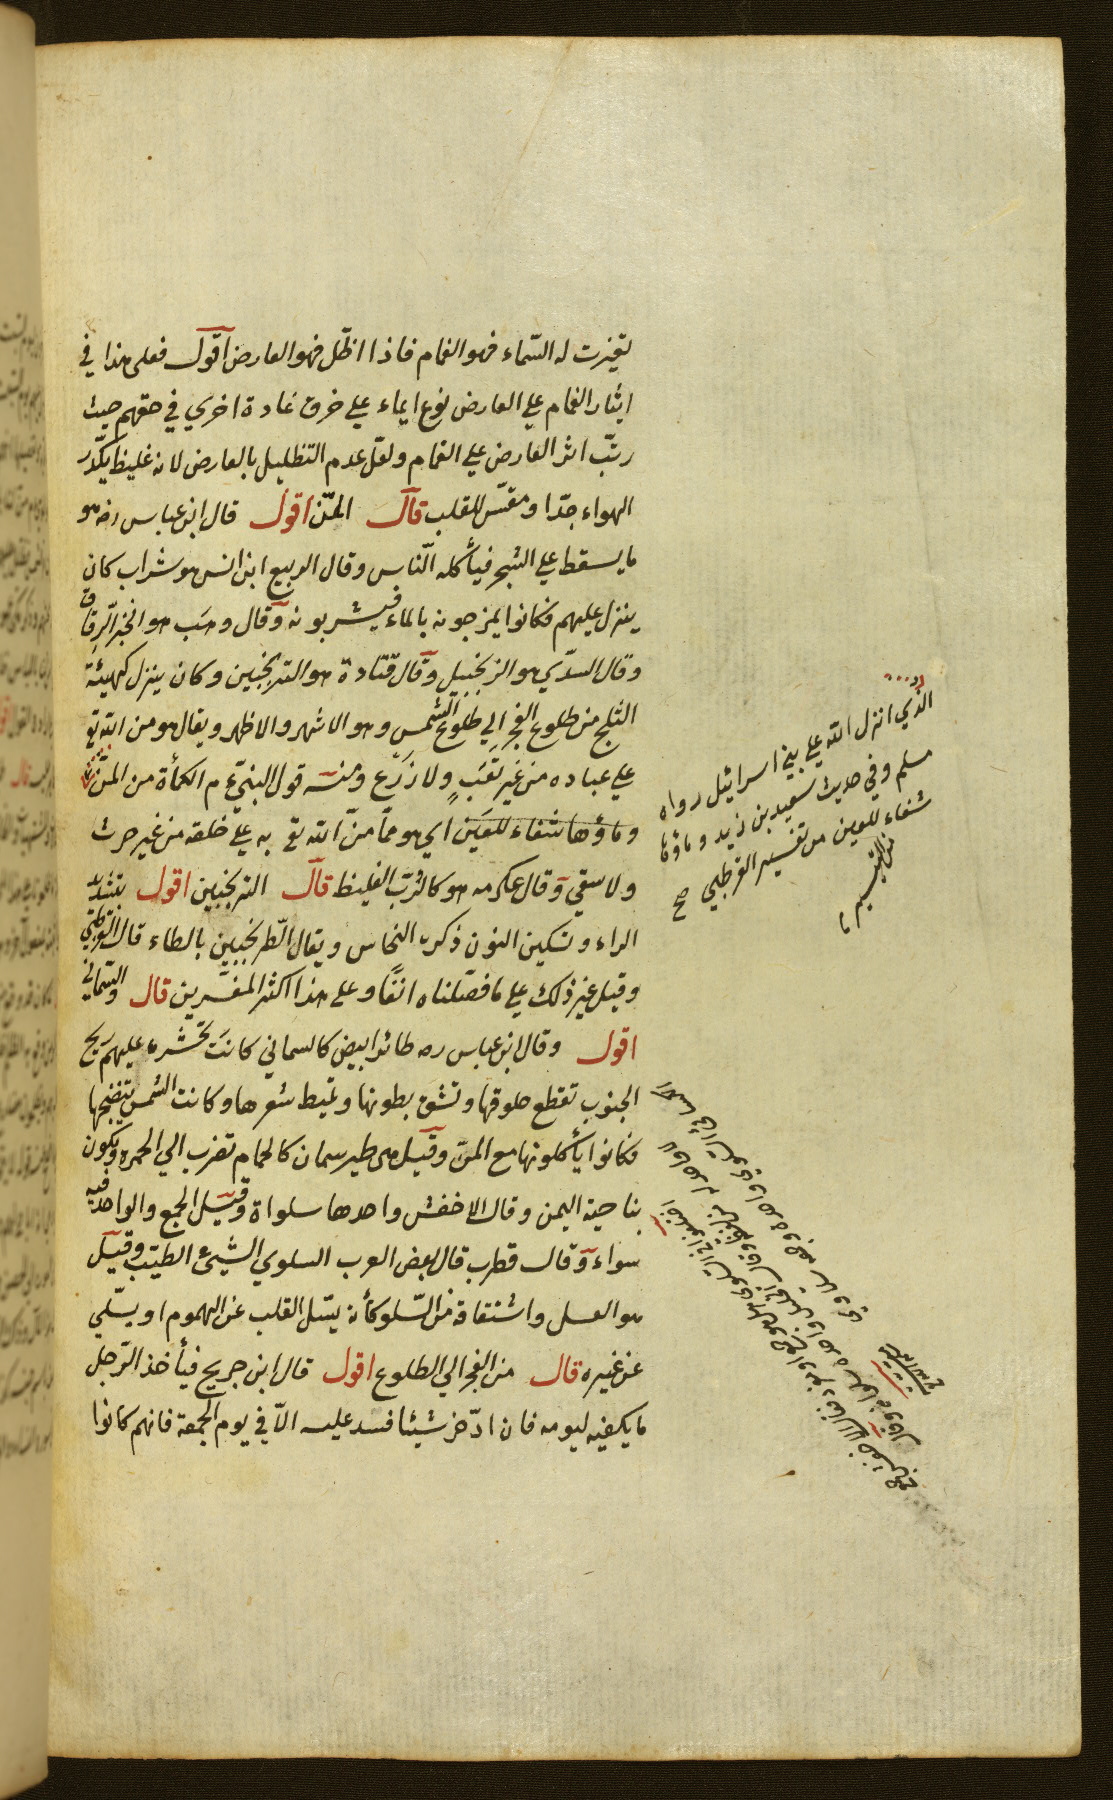 تغيرت له السماء فهو الغمام فاذا اظل فهو العارض اقول فعلى هذا في
ايثار الغمام علي العارض نوع ايماء علي خرق عادة اخري في حقهم حيث
رتّب اثر العارض علي الغمام ولعل عدم التظليل بالعارض لانه غليظ يكدّر
الهواء جدّا و للقلب قال المنّ اقول قال ابن عباس رضه هو
ما يسقط علي الشجر فيأكله النّاس وقال الربيع ابن انس هو شراب كان
ينزل عليهم فكانوا يمزجونه بالماء فيشربونه وقال وهب هو الخبز الرّقاق
وقال السدّي هو الزنجبيل وقال قتادة هو الترنجبين وكان ينزل كهيئة
الثلج من طلوع الفجر الي طلوع الشمس وهو الاشهر والاظهر ويقال هو من الله تع
علي عباده من غير تعَبٍ ولا زَرْع ومنه قول النبيّ عم الكمأة من المنّ
وماؤها شفاء للعَين اي هو ممّا منّ الله تع به عليّ خلقه من غير حرث
ولا سقي وقال عكرمه هو كالرّبّ الغليظ قال الترنجبين اقول بتشديد
الراء وتسكين النون ذكره النحاس ويقال الطّرنجبين بالطاء قال القرطبي
وقيل غير ذلك علي ما فصّلناه انفًا وعلى هذا اكثر المفسّرين قال والسّماني
اقول وقال ابن عباس رضه طائر ابيض كالسماني كانَت تحشره عليهم ريح
الجنوب تقطع حلوقها وتشقّ بطونها وتميط شعرها وكانت الشمس تنضجها
فكانوا يأكلونها مع المنّ وقيل هي طير سمان كالحمام تضرب الي الحمره ويكون
بناحية اليمن وقال الاخفش واحدها سلواة وقيل الجمع والواحد فيه
سواء وقال قطرب قال بعض العرب السلوي الشيئ الطيّب وقيل
هو العسل واشتقاقه من السّلو كأنه يسّل القلب عن الهموم او يسّلي
عن غيره قال من الفجر الي الطلوع اقول قال ابن جريج فيأخذ الرّجل
ما يكفيه ليومه فان ادّخر شيئا فسد عليه الّا في يوم الجمعة فانهم كانوا
الذي انزل الله علي بني اسرائيل رواه
مسلم وفي حديث سعيد بن زيد وماؤها
شفاء للعين من تفسير القرطبي صح